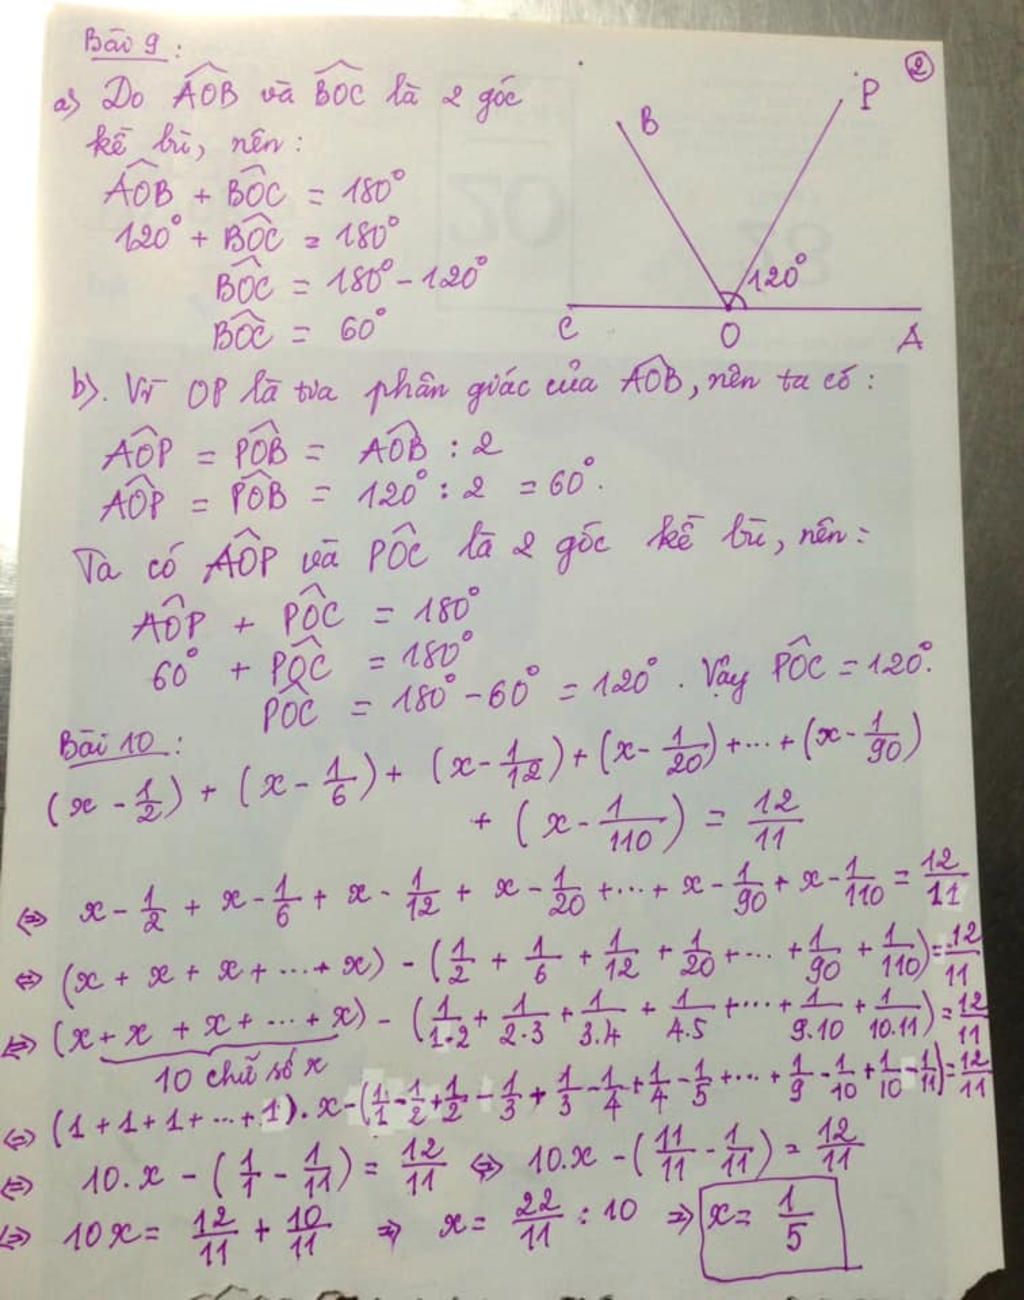 Bài 9 :
②
a) Do AÔB và BÔC là 2 góc
kề bù, nên :
AÔB + BÔC = 180°
120° + BÔC = 180°
BÔC = 180° - 120°
BÔC = 60°
B
P
120°
C
O
A
b). Vì OP là tia phân giác của AÔB, nên ta có :
AÔP = PÔB = AÔB : 2
AÔP = PÔB = 120° : 2 = 60°.
Ta có AÔP và PÔC là 2 góc kề bù, nên :
AÔP + PÔC = 180°
60° + PÔC = 180°
PÔC = 180° - 60° = 120°. Vậy PÔC = 120°.
Bài 10 :
(x - 1/2) + (x - 1/6) + (x - 1/12) + (x - 1/20) + ... + (x - 1/90)
+ (x - 1/110) = 12/11
⇔ x - 1/2 + x - 1/6 + x - 1/12 + x - 1/20 + ... + x - 1/90 + x - 1/110 = 12/11
⇔ (x + x + x + ... + x) - (1/2 + 1/6 + 1/12 + 1/20 + ... + 1/90 + 1/110) = 12/11
⇔ (x + x + x + ... + x) - (1/1.2 + 1/2.3 + 1/3.4 + 1/4.5 + ... + 1/9.10 + 1/10.11) = 12/11
10 chữ số x
⇔ (1 + 1 + 1 + ... + 1) . x - (1/1 - 1/2 + 1/2 - 1/3 + 1/3 - 1/4 + 1/4 - 1/5 + ... + 1/9 - 1/10 + 1/10 - 1/11) = 12/11
⇔ 10.x - (1/1 - 1/11) = 12/11 ⇔ 10.x - (11/11 - 1/11) = 12/11
⇔ 10x = 12/11 + 10/11 ⇒ x = 22/11 : 10 ⇒ x = 1/5